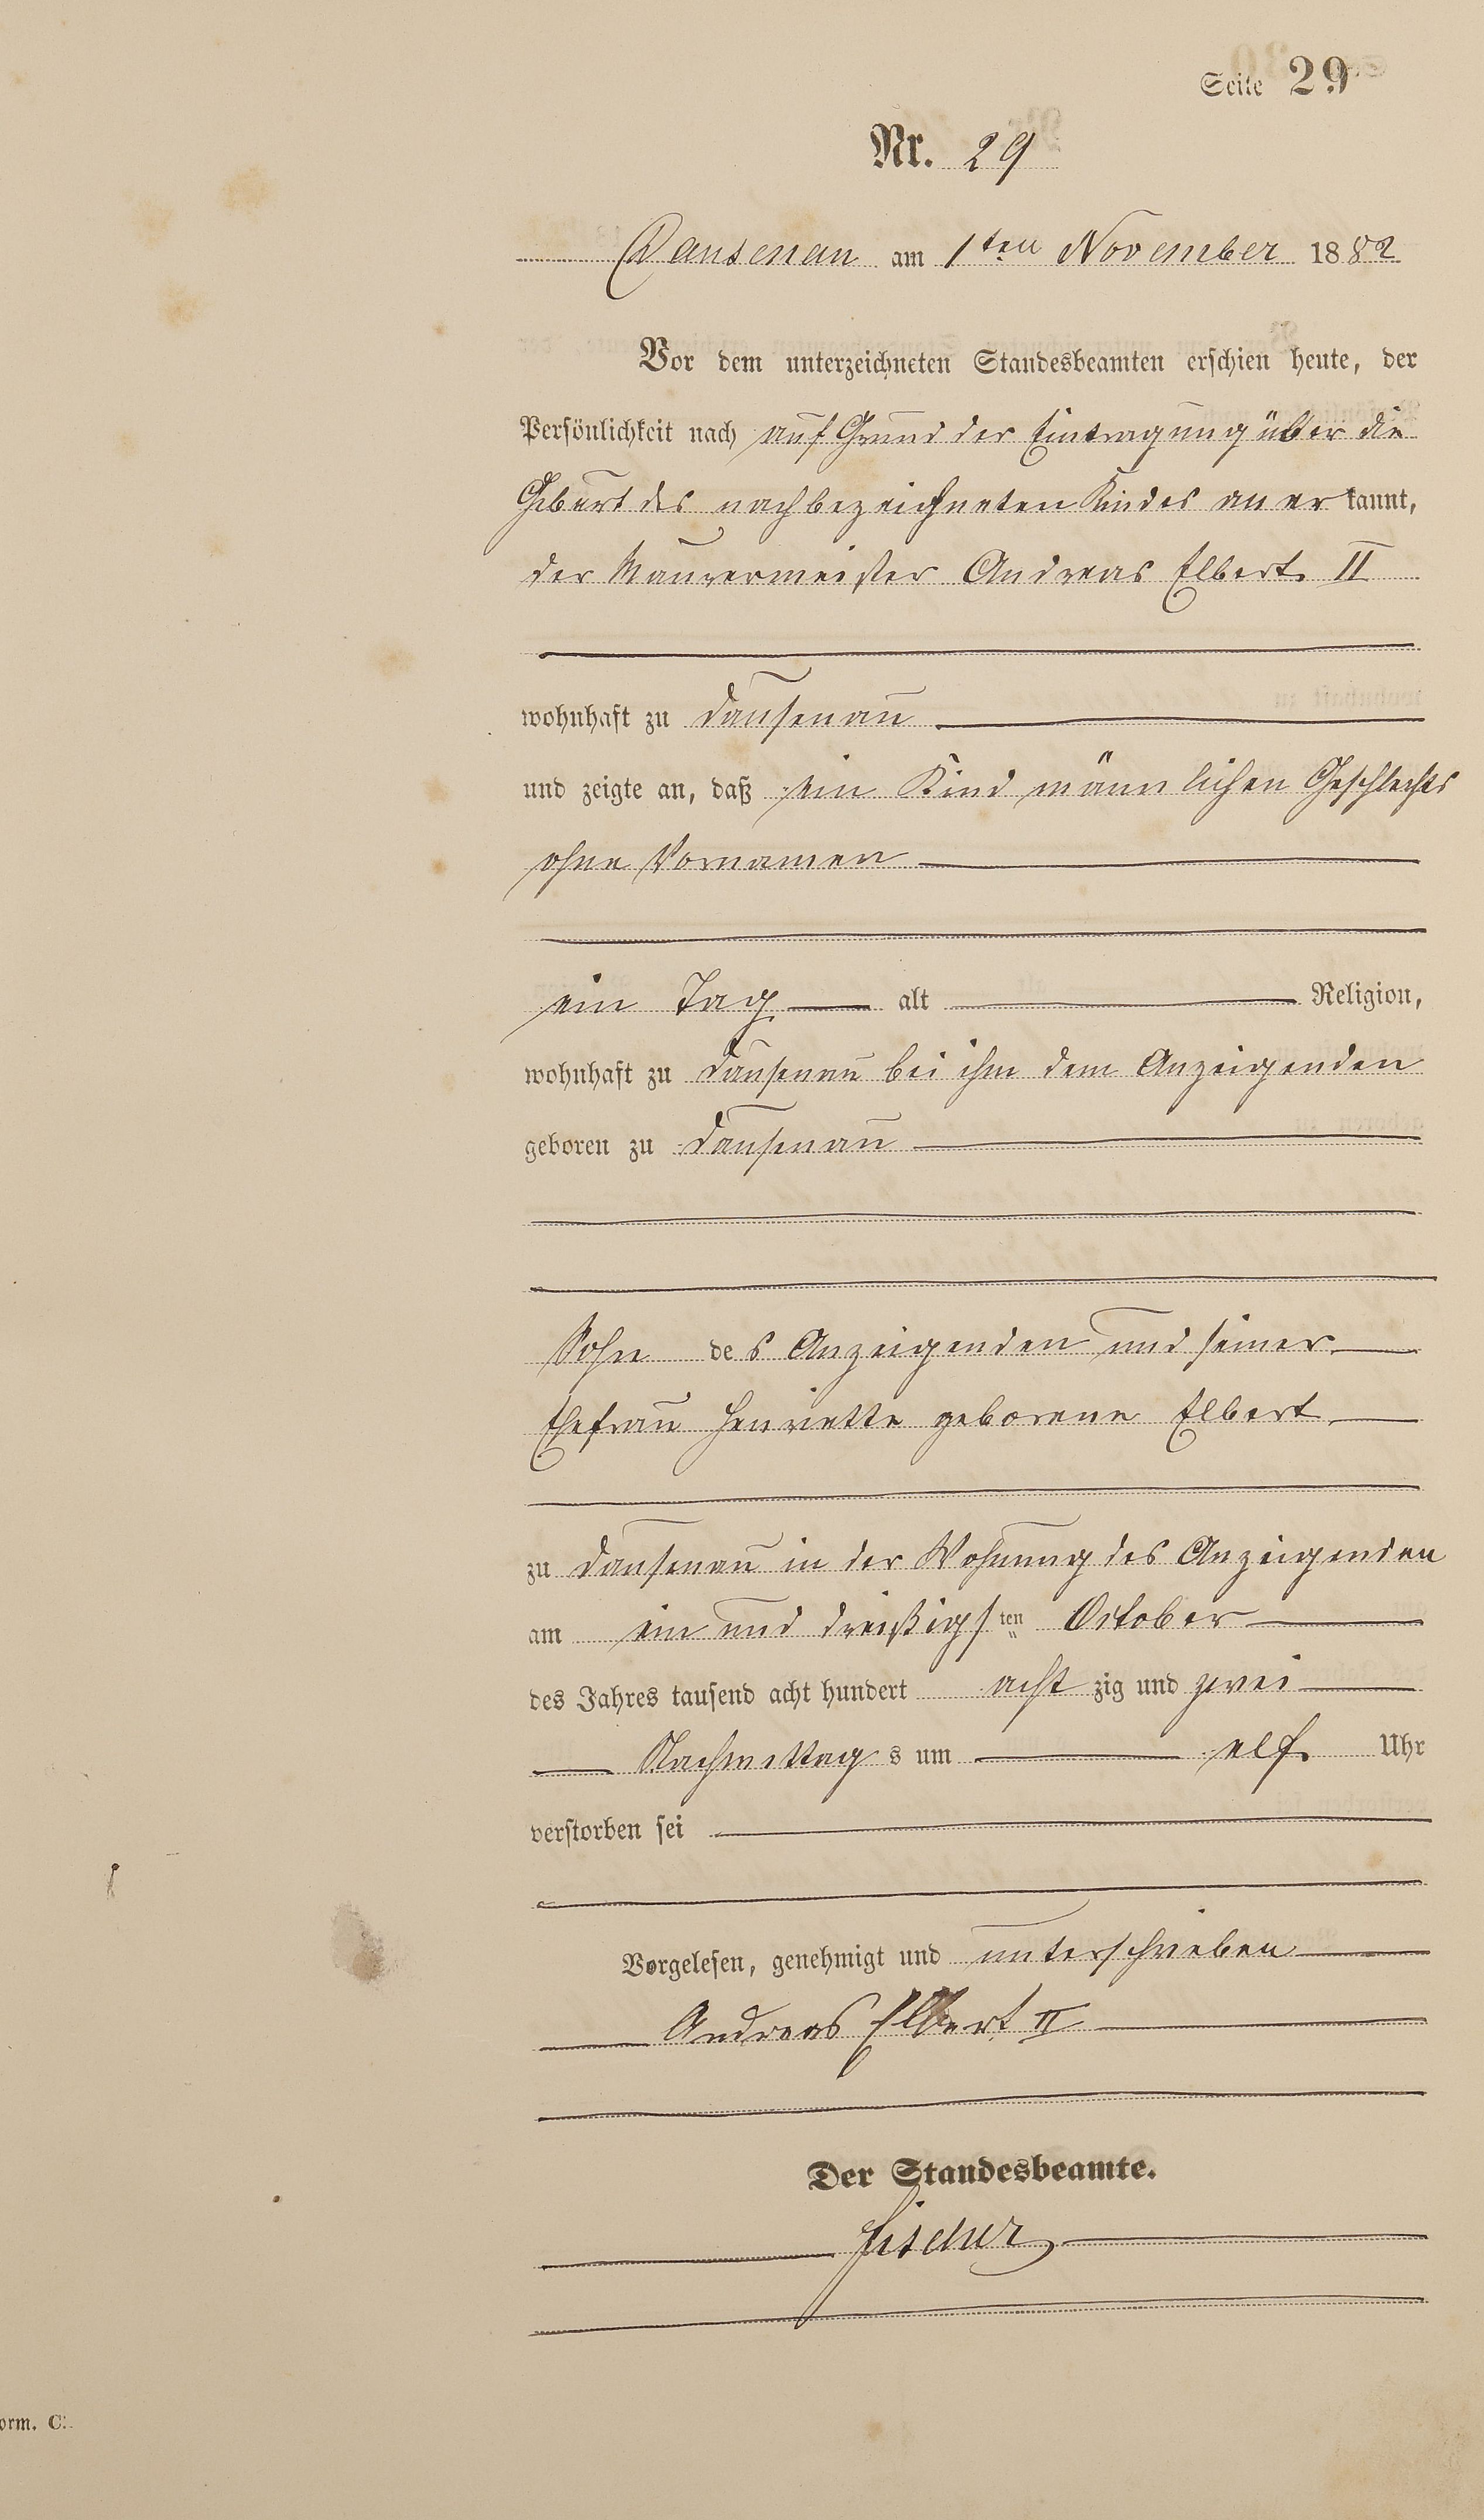 Seite 29
Nr. 29
Dausenau am 1ten November 1882
Vor dem unterzeichneten Standesbeamten erschien heute, der
Persönlichkeit nach auf Grund der Eintragung über die
Geburt des nachbezeichneten Kindes anerkannt,
der Maurermeister Andreas Elbert II
wohnhaft zu Dausenau
und zeigte an, daß ein Kind männlichen Geschlechts
ohne Vornamen
ein Tag alt Religion,
wohnhaft zu Dausenau bei ihm dem Anzeigenden
geboren zu Dausenau
Sohn des Anzeigenden und seiner
Ehefrau Henriette geborene Elbert
zu Dausenau in der Wohnung des Anzeigenden
am ein und dreißigsten October
des Jahres tausend acht hundert acht zig und zwei
Nachmittags um elf Uhr
verstorben sei
Vorgelesen, genehmigt und unterschrieben
Andreas Elbert II
Der Standesbeamte.
Fischer
orm. C.